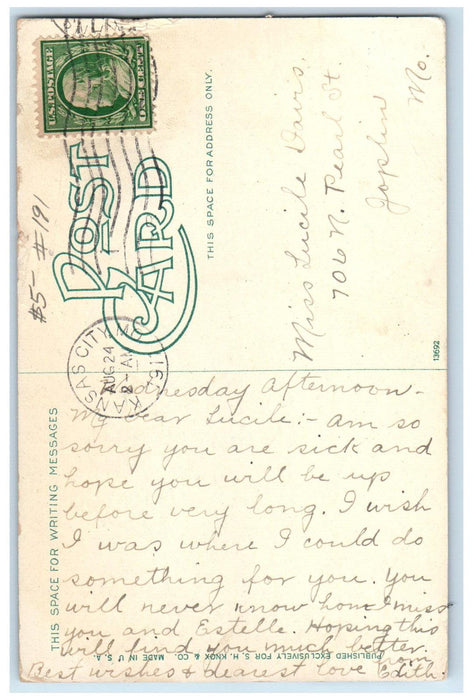 U.S. POSTAGE
ONE CENT
POST
CARD
THIS SPACE FOR ADDRESS ONLY.
KANSAS CITY, MO.
AUG 24
8 - AM
191
$5- #191
Miss Lucile Davis,
706 N. Pearl St.
Joplin Mo.
13692
THIS SPACE FOR WRITING MESSAGES
Wednesday Afternoon -
My dear Lucile:- Am so
sorry you are sick and
hope you will be up
before very long. I wish
I was where I could do
something for you. You
will never know how I miss
you and Estelle. Hoping this
will find you much better.
Best wishes & dearest love from
Edith.
PUBLISHED EXCLUSIVELY FOR S. H. KNOX & CO. MADE IN U.S.A.